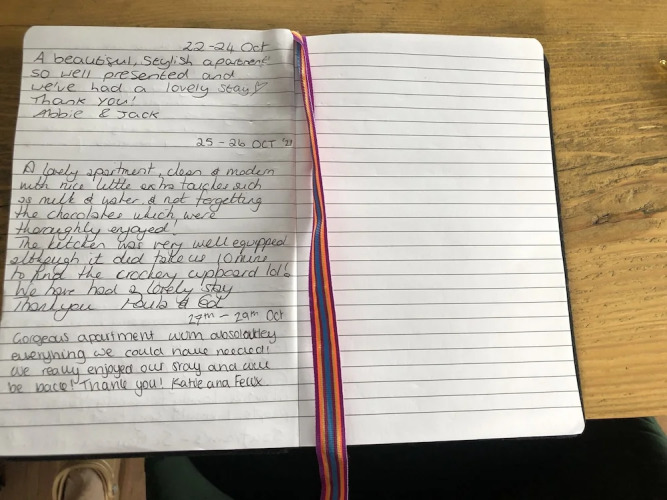 22-24 Oct
A beautiful, stylish apartment
so well presented and
we've had a lovely stay
Thank you!
Abbie & Jack
25 - 26 OCT '21
A lovely apartment, clean & modern
with nice little extra touches such
as milk & water & not forgetting
the chocolates which were
thoroughly enjoyed!
The kitchen was very well equipped
although it did take us 10 mins
to find the crockery cupboard lol!
We have had a lovely stay
Thank you Paula & Ed
27th - 29th Oct
Gorgeous apartment with absolutley
everything we could have needed!
We really enjoyed our stay and will
be back! Thank you! Katie and Felix.